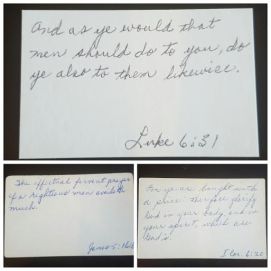 And as ye would that
men should do to you, do
ye also to them likewise.
Luke 6:31
The effectual fervent prayer
of a righteous man avails
much.
James 5:16b
For ye are bought with
a price: therefore glorify
God in your body, and in
your spirit, which are
God's.
I Cor. 6:20